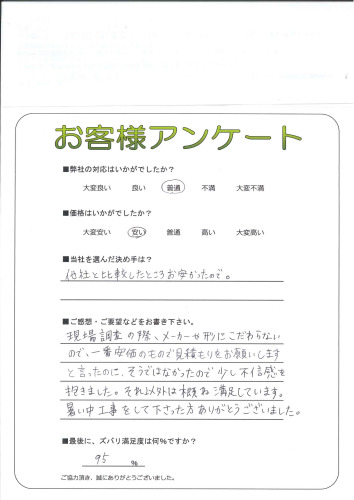 お客様アンケート
■弊社の対応はいかがでしたか?
大変良い 良い 普通 不満 大変不満
■価格はいかがでしたか?
大変安い 安い 普通 高い 大変高い
■当社を選んだ決め手は?
他社と比較したところお安かったので。
■ご感想・ご要望などをお書き下さい。
現場調査の際、メーカーや形にこだわらない
ので、一番安価のもので見積もりをお願いします
と言ったのに、そうではなかったので少し不信感を
抱きました。それ以外は概ね満足しています。
暑い中工事をして下さった方ありがとうございました。
■最後に、ズバリ満足度は何%ですか?
95 %
ご協力頂き、誠にありがとうございました。